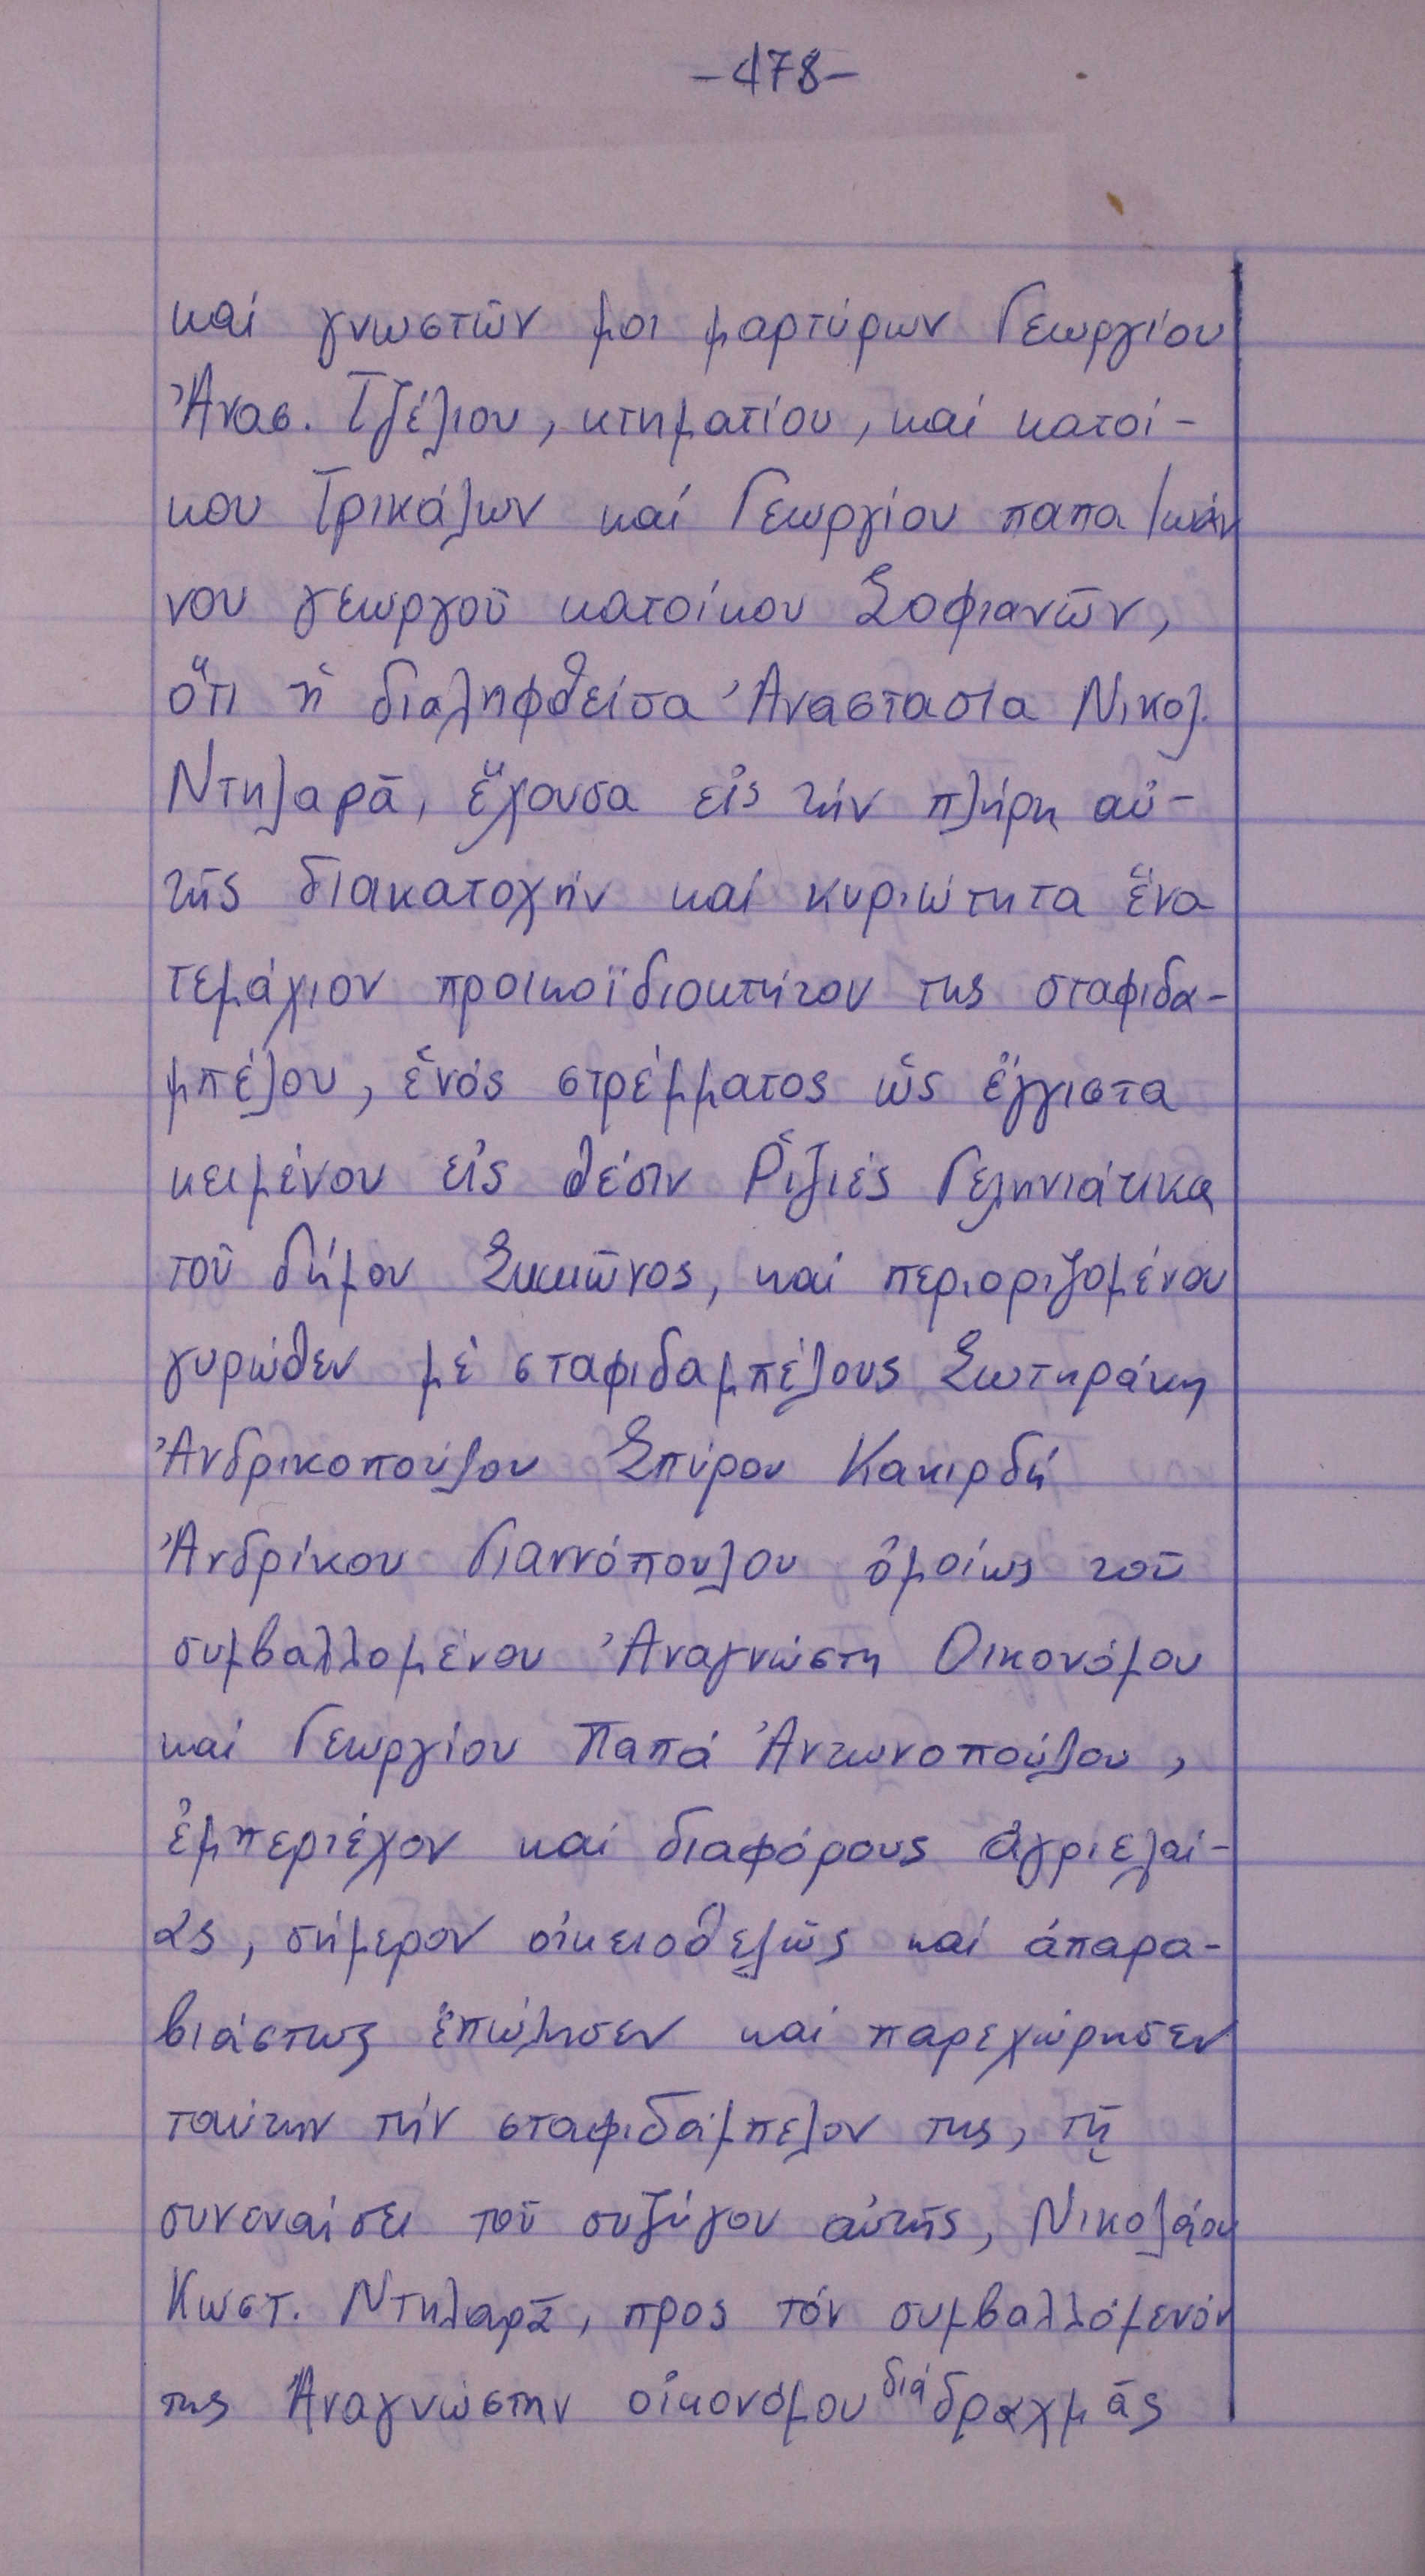 -478-
καί γνωστῶν μοι μαρτύρων Γεωργίου
Ἀνασ. Τζέλιου, κτηματίου, καί κατοί-
κου Τρικάλων καί Γεωργίου παπα Ἰωάν
νου γεωργοῦ κατοίκου Σοφιανῶν,
ὅτι ἡ διαληφθεῖσα Ἀναστασία Νικολ.
Ντηλαρᾶ, ἔχουσα εἰς τήν πλήρη αὐ-
τῆς διακατοχήν καί κυριώτητα ἕνα
τεμάχιον προικοϊδιοκτήτου της σταφιδα-
μπέλου, ἑνός στρέμματος ὡς ἔγγιστα
κειμένου εἰς θέσιν Ῥιζιές Γεληνιάτικα
τοῦ δήμου Συκιῶνος, καί περιοριζομένου
γυρώθεν μέ σταφιδαμπέλους Σωτηράκη
Ἀνδρικοπούλου Σπύρου Κακιρδή
Ἀνδρίκου Γιαννόπουλου ὁμοίως τοῦ
συμβαλλομένου Ἀναγνώστη Οικονόμου
καί Γεωργίου Παπά Ἀντωνοπούλου,
ἐμπεριέχον καί διαφόρους ἀγριελαί-
ας, σήμερον οἰκειοθελῶς καί ἀπαρα-
βιάστως ἐπώλησεν καί παρεχώρησεν
ταύτην τήν σταφιδάμπελον της, τῇ
συνεναίσει τοῦ συζύγου αὐτῆς, Νικολάου
Κωστ. Ντηλαρᾶ, προς τόν συμβαλλόμενόν
της Ἀναγνώστην οἰκονόμου διά δραχμάς